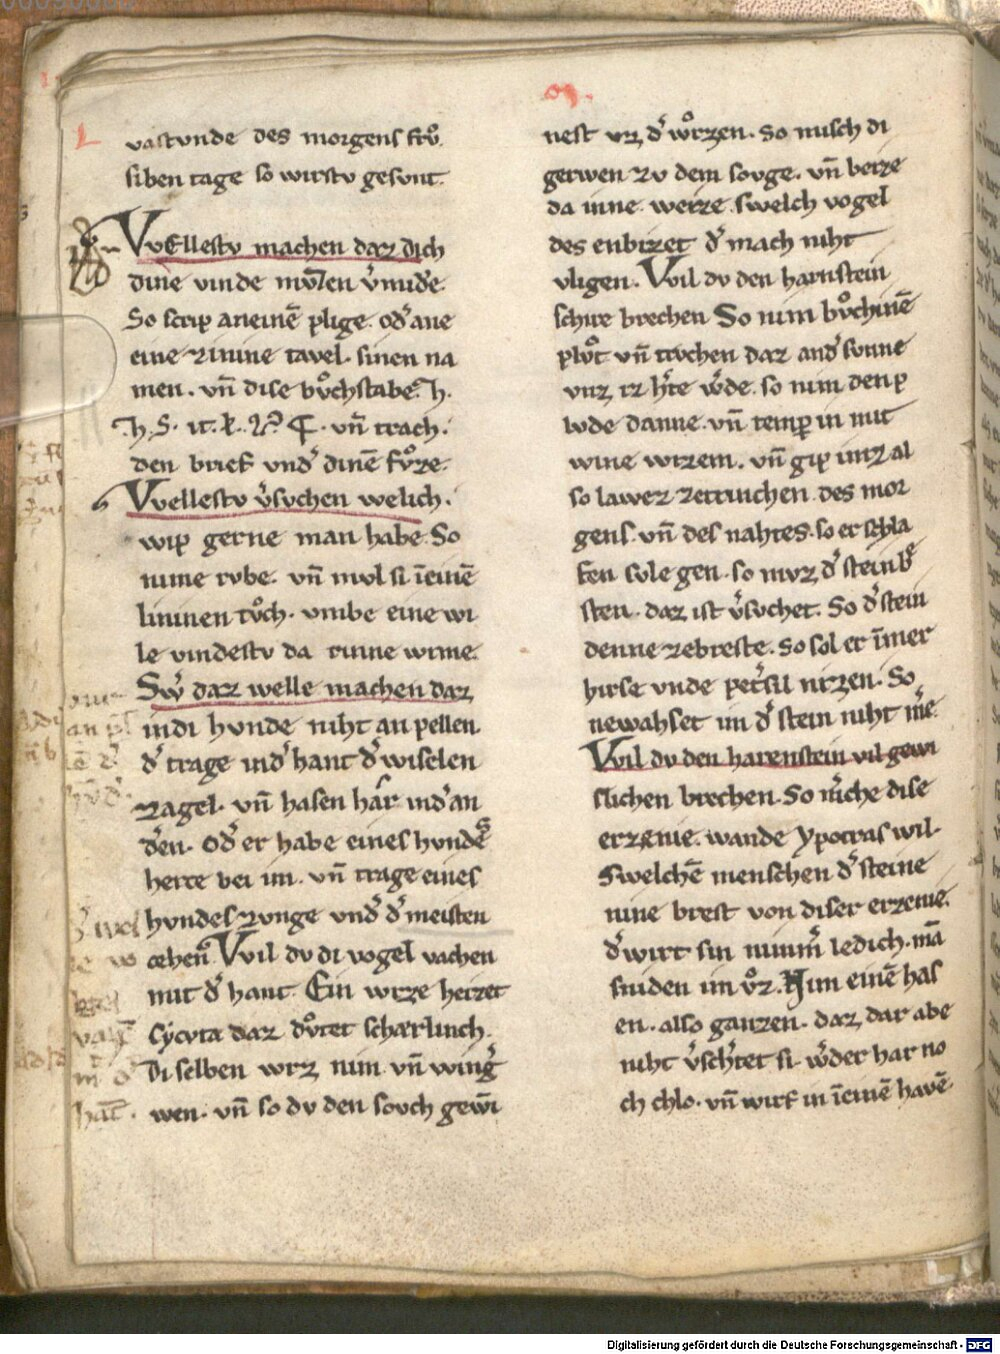 L
vastvnde des morgens frv̊.
siben tage so wirstv gesvnt.
VvEllestv machen daz dich
dine vinde mv̊zen v̓mid̓e.
So scrip aneinē plige. od̓ ane
eine zinine tavel. sinen na
men. vn̄ dise bv̊chstabē. h.
h. S.
vn̄ trach.
den brief vnd̓ dinē fv̊ze.
Vvellestv v̓svchen welich.
wip gerne man habe. So
nime rvbe. vn̄ mvl si īeinē
lininen tv̊ch. vmbe eine wi
le vindestv da rinne wrme.
Sw̓ daz welle machen daz
indi hvnde niht an pellen
d̓ trage ind̓ hant d̓ wiselen
zagel. vn̄ hasen har ind̓ an
d̓en. Od̓ er habe eines hvnd̓es
herce bei im. vn̄ trage eines
hvndes zvnge vnd̓ d̓ meisten
cehen. Vvil dv di vogel vachen
mit d̓ hant. Ein wrze heizet
Cycvta daz dv̊tet scherlinch.
Di selben wrz nim vn̄ wing̓
wen. vn̄ so dv den sovch gewī
m.
nest vz d̓ wv̊rzen. So misch di
gerwen zv dem sovge. vn̄ beize
da inne weize. swelch vogel
des enbizet d̓ mach niht
vligen. Vvil dv den harnstein
schire brechen So nim bv̊chinē
plv̊t vn̄ trvchen daz and̓ svnne
vnz iz h̓te w̓de. so nim den p
lvde danne. vn̄ temper in mit
wine wizem. vn̄ gip imz al
so lawez zetrinchen. des mor
gens. vn̄ des nahtes. so er schla
fen svle gen. so mvz d̓ stein b̓
sten. daz ist v̓svchet. So d̓ stein
denne zebreste. So sol er īmer
hirse vnde pet̓sil nizen. So
newahset im d̓ stein niht mē.
Vvil dv den harenstein vil gewi
slichen brechen. So mache dise
erzenie. wande ypocras wil.
Swelchē menschen d̓ steine
nine brest von diser erzenie.
d̓ wirt sin nimm̓ ledich. mā
sniden im v̊z. Nim einē has
en. also ganzen. daz dar abe
niht v̓sch̓tet si. w̓der har no
ch chlo. vn̄ wirf in īeinē havē
Digitalisierung gefördert durch die Deutsche Forschungsgemeinschaft - DFG